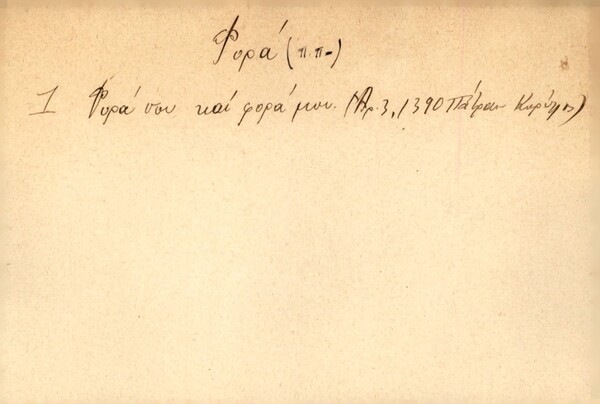 Φορά (π.π-)
1 Φορά σου καί φορά μου. (Αρ. 3, 1390 Πάτραι Κορύλλος)